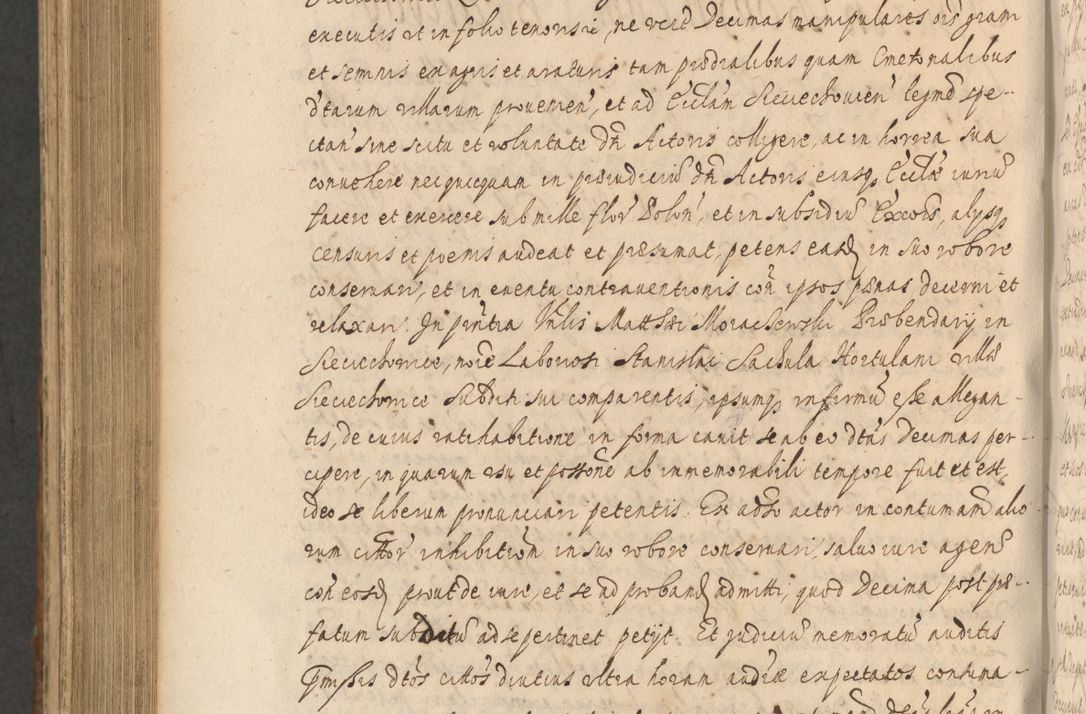 executis et in folio tenoris sui, ne vero Decimas manipulares ois gram
et seminis ex agris et araturis tam prædialibus quam Cmetonalibus
dtarum villarum provenien', et ad Eccl'am Sieciechovien' lejmd spe-
ctan' sine scitu et voluntate dni Actoris colligere, ac in horrea sua
convehere nec quicquam in præiudiciu dni Actoris eiusq Ecclæ iuriu
facere et exercere sub mille flor' Polon', et in subsidiu Excois, alysq
censuris et poenis audeat et præsumat, petens eand in suo robore
conservari, et in eventu contraventionis con ipsos pænas decerni et
relaxari. In pntia Vnlis Matthæi Moraczewski Præbendarij in
Sieciechowice, noie Laboriosi Stanislai Sachula Hortulani villæ
Sieciechowice Subditi sui comparentis, ipsumq infirmu esse allegan-
tis, de cuius ratihabitione in forma cavit se ab eo dtas Decimas per-
cipere, in quarum usu et possone ab immemorabili tempore fuit et est,
ideo se liberum pronunciari petentis. Ex adso actor in contumam alio-
rum cittor' inhibition in suo robore conservari, salvo iure agen
con eosd prout de iure, et se ad proband admitti, quod Decima post præ-
fatum subditu ad se pertinet petijt. Et judiciu memoratu auditis
Pmissis dtos cittos diutius ultra horam audiæ expectatos contuma-